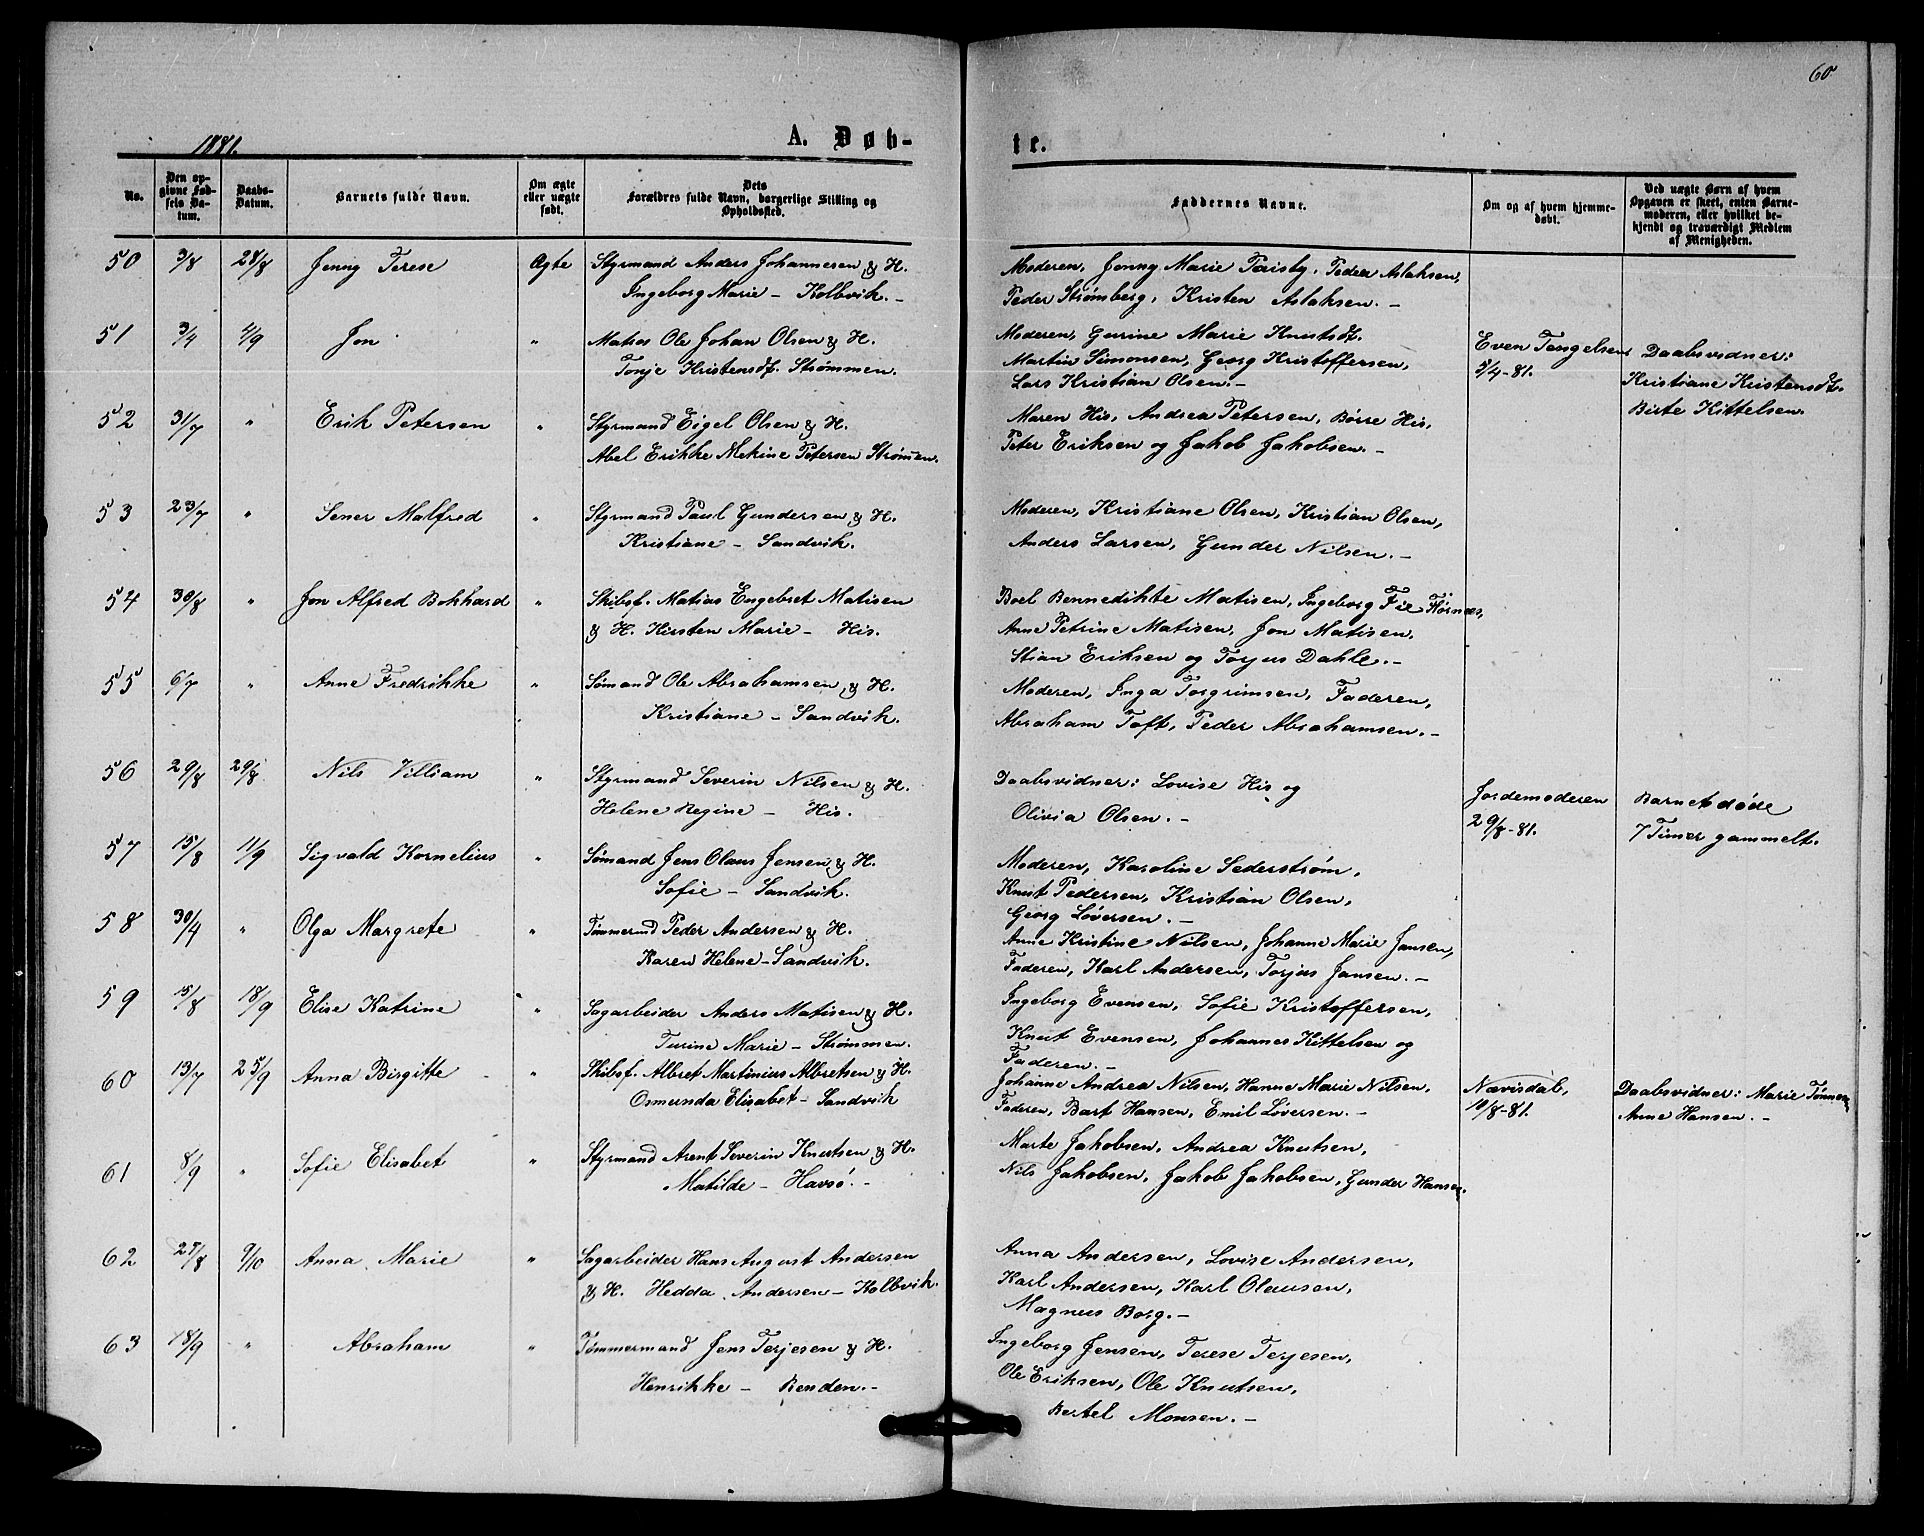 60
1881.
A. Døb-
te.
No.
Den op-
givne Fød-
sels Da-
tum.
Daabs-
Datum.
Barnets fulde Navn.
Om ægte
eller uægte
født.
Dets
Forældres fulde Navn, borgerlige Stilling og
Opholdssted.
Faddernes Navne.
Om og af hvem hjemme-
døbt.
Ved uægte Børn af hvem
Opgaven er skeet, enten Barne-
moderen, eller hvilket be-
kjendt og troværdigt Medlem
af Menigheden.
50 3/8 28/8 Jenny Terese Ægte Styrmand Anders Johannesen & H. Moderen, Jenny Marie Taisty, Peder Aslaksen,
Ingeborg Marie – Kolbvik. – Peder Strømberg, Kristen Aslaksen. –
51 3/4 4/9 Jon " Matros Ole Johan Olsen & H. Moderen, Gurine Marie Knutsdt. Even Tengelsen Daabsvidner:
Tonje Kristensdt. Strømmen. Martin Simonsen, Georg Kristoffersen, 5/4-81. Kristiane Kristensdt.
Lars Kristian Olsen. – Birte Kittelsen.
52 31/7 " Erik Petersen " Styrmand Eigel Olsen & H. Maren His, Andrea Petersen, Børre His,
Abel Erikke Mekine Petersen Strømen. Peter Eriksen og Jakob Jakobsen. –
53 23/7 " Sener Malfred " Styrmand Paul Gundersen & H. Moderen, Kristiane Olsen, Kristian Olsen,
Kristiane – Sandvik. Anders Larsen, Gunder Nilsen. –
54 30/8 " Jon Alfred Bokhard " Skibsf. Matias Engebret Matisen Boel Bennedikte Matisen, Ingeborg Fie Hørnes,
& H. Kirsten Marie – His. Anne Petrine Matisen, Jon Matisen,
Stian Eriksen og Torjus Dahle. –
55 6/7 " Anne Fredrikke " Sømand Ole Abrahamsen & H. Moderen, Inga Torgrimsen, Faderen,
Kristiane – Sandvik. Abraham Toft, Peder Abrahamsen. –
56 29/8 29/8 Nils Villiam " Styrmand Severin Nilsen & H. Daabsvidner: Lovise His og Jordemoderen Barnet døde
Helene Regine – His. Olivia Olsen. – 29/8-81. 7 Timer gammelt.
57 15/8 11/9 Sigvald Kornelius " Sømand Jens Olaus Jensen & H. Moderen, Karoline Sederstrøm,
Sofie – Sandvik. Knut Pedersen, Kristian Olsen,
Georg Løversen. –
58 30/4 " Olga Margrete " Tømmermd Peder Andersen & H. Anne Kristine Nilsen, Johanne Marie Jansen,
Karen Helene – Sandvik. Faderen, Karl Andersen, Torjus Jansen. –
59 15/8 18/9 Elise Katrine " Sagarbeider Anders Matisen & H. Ingeborg Evensen, Sofie Kristoffersen,
Turine Marie – Strømmen. Knut Evensen, Johannes Kittelsen og
Faderen. –
60 13/7 25/9 Anna Birgitte " Skibsf. Albret Martinius Albretsen & H. Johanne Andrea Nilsen, Hanne Marie Nilsen, Nævisdal, Daabsvidner: Marie Tønnes
Osmunda Elisabet – Sandvik Faderen, Bart Hansen, Emil Løversen. – 10/8-81. Anne Hansen. –
61 8/9 " Sofie Elisabet " Styrmand Arent Severin Knutsen & H. Marte Jakobsen, Andrea Knutsen,
Matilde – Havsø. – Nils Jakobsen, Jakob Jakobsen, Gunder Hansen.
62 27/8 9/10 Anna Marie " Sagarbeider Hans August Andersen Anna Andersen, Lovise Andersen,
& H. Hedda Andersen – Kolbvik. Karl Andersen, Karl Olausen,
Magnus Borg. –
63 18/9 " Abraham " Tømmermand Jens Terjesen & H. Ingeborg Jensen, Terese Terjesen,
Henrikke – Renden. – Ole Eriksen, Ole Knutsen,
Bertel Monsen. –